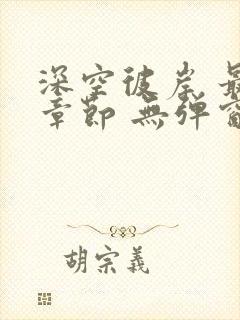 深空彼岸 最
章節 無彈窗
胡宗義